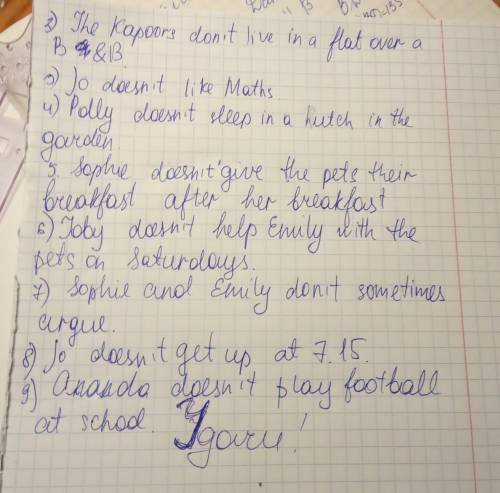 2) The Kapoors don't live in a flat over a
B &B.
3) Jo doesn't like Maths.
4) Polly doesn't sleep in a hutch in the
garden.
5. Sophie doesn't give the pets their
breakfast after her breakfast
6) Toby doesn't help Emily with the
pets on Saturdays.
7) Sophie and Emily don't sometimes
argue.
8) Jo doesn't get up at 7.15.
9) Ananda doesn't play football
at school.
Удачи!